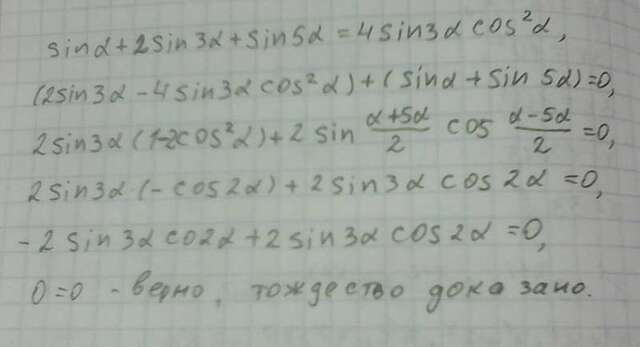 sinα+2sin3α+sin5α=4sin3α cos²α,
(2sin3α-4sin3αcos²α)+(sinα+sin5α)=0,
2sin3α(1-2cos²α)+2 sin α+5α/2 cos α-5α/2=0,
2sin3α(-cos2α)+2sin3α cos2α=0,
-2 sin3α co2α+2sin3α cos2α=0,
0=0 -верно, тождество доказано.